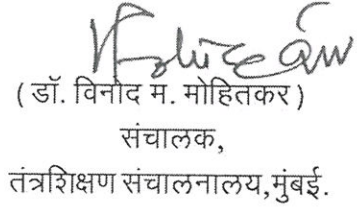 ( डॉ. विनोद म. मोहितकर )
संचालक,
तंत्रशिक्षण संचालनालय,मुंबई.